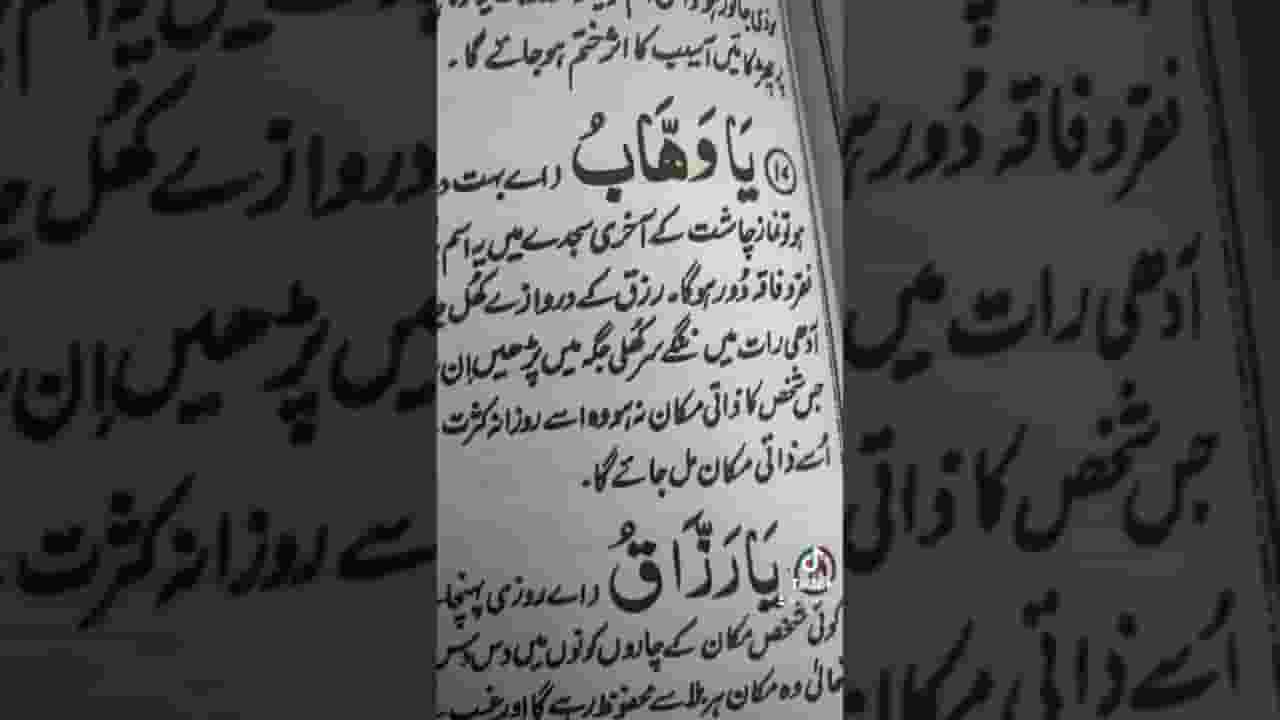 پھڑکائیں آسیب کا اثر ختم ہو جائے گا۔
۱۷ یَا وَهَّابُ (اے بہت
ہو تو نماز چاشت کے آخری سجدے میں یہ اسم
فقر و فاقہ دُور ہوگا۔ رزق کے دروازے کھُل
آدھی رات میں ننگے سر کھُلی جگہ میں پڑھیں اِن
جس شخص کا ذاتی مکان نہ ہو وہ اسے روزانہ کثرت
اُسے ذاتی مکان مل جائے گا۔
یَا رَزَّاقُ (اے روزی پہنچا
کوئی شخص مکان کے چاروں کونوں میں دس دس
تعالیٰ وہ مکان ہر بلا سے محفوظ رہے گا اور غیب